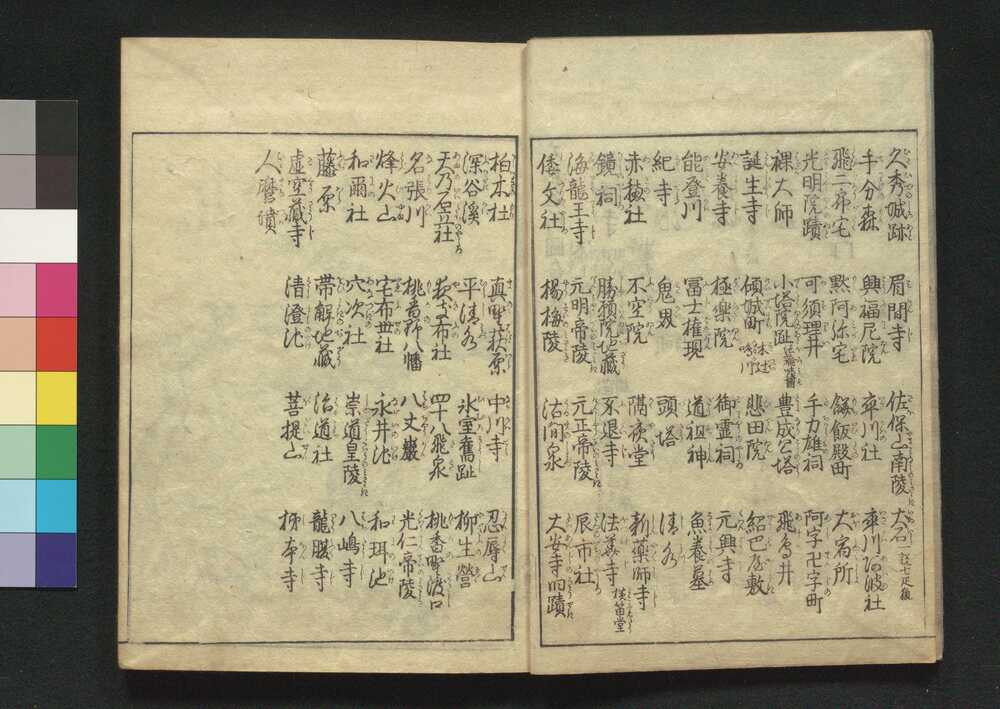 久秀城跡 眉間寺 佐保山南陵 大石
手分森 興福尼院 率川社 率川阿波社
飛二郎宅 黙阿弥宅 餅飯殿町 大宿所
光明院蹟 可須理井 手力雄祠 阿字卍字町
裸大師 小塔院趾 豊成公塔 飛鳥井
誕生寺 傾城町 鳴川 悲田院 紹巴屋敷
安養寺 極楽院 御霊祠 元興寺
能登川 冨士権現 道祖神 魚養墓
紀寺 鬼界 頭塔 清水
赤穂社 不空院 隔夜堂 新薬師寺
鏡祠 勝願院地蔵 不退寺 法華寺 横笛堂
海龍王寺 元明帝陵 元正帝陵 辰市社
倭文社 楊梅陵 沽間泉 大安寺旧蹟
柏木杜 真野萩原 中川寺 忍辱山
深谷溪 平清水 氷室舊趾 柳生營
天乃石立社 夜支布社 四十八飛泉 桃香野渡口
名張川 桃香野八幡 八丈巖 光仁帝陵
烽火山 宅布世社 永井池 和珥池
和爾社 穴次社 崇道皇陵 八嶋寺
藤原 帯解地蔵 治道社 龍腹寺
虚空蔵寺 清澄池 菩提山 柿本寺
人麿墳